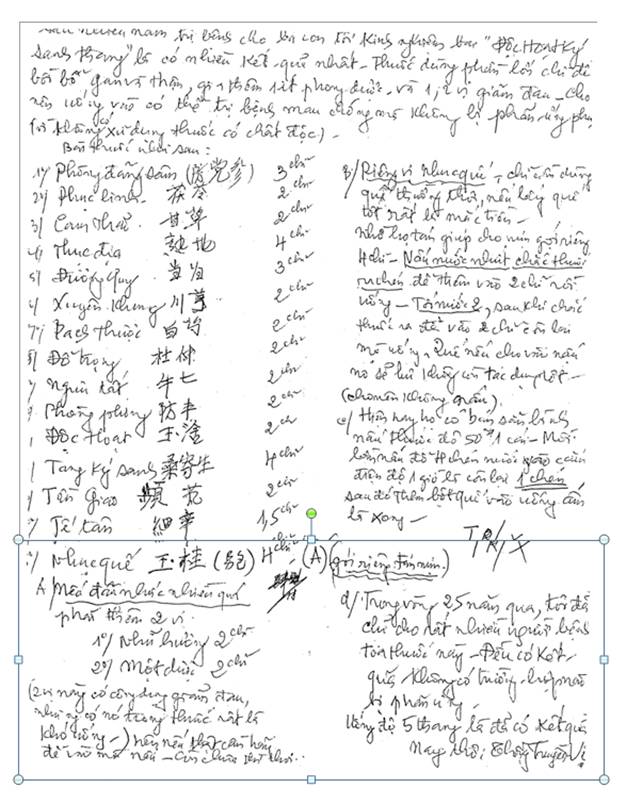 nhiều năm trị bệnh cho bà con tôi kinh nghiệm bài "Độc Hoạt Ký
Sanh thang" là có nhiều kết quả nhất - Thuốc dùng phần lớn chỉ để
bồi bổ gan và thận, gia thêm 1 ít phong dược, và 1, 2 vị giảm đau - cho
nên uống vào có thể trị bệnh mau chóng mà không bị phản ứng phụ
(vì không xử dụng thuốc có chất độc) -
Bài thuốc như sau:
1) Phòng đẳng sâm (防党参) 3 chỉ
2) Phục linh 茯苓 2 chỉ
3) Cam thảo 甘草 2 chỉ
4) Thục địa 熟地 4 chỉ
5) Đương quy 当归 3 chỉ
6) Xuyên Khung 川芎 2 chỉ
7) Bạch thược 白芍 2 chỉ
8) Đỗ trọng 杜仲 2 chỉ
9) Ngưu tất 牛七 2 chỉ
Phòng phong 防丰 2 chỉ
Độc Hoạt 2 chỉ
Tang Ký sanh 桑寄生 4 chỉ
Tần Giao 2 chỉ
Tế tân 細辛 1,5 chỉ
Nhục quế 玉桂 4 chỉ (A) (gói riêng tán mịn.)
A) Nếu đau nhức nhiều quá
phải thêm 2 vị
1º/ Nhũ hương 2 chỉ
2º/ Một dược 2 chỉ
(2 vị này có công dụng giảm đau,
nhưng có nó trong thuốc rất là
khó uống -) nên nếu thật cần hãy
để vào mà nấu -
B/ Riêng vị nhục quế, chỉ cần dùng
quế thường thôi, nếu lấy quế
tốt rất là mắc tiền -
nhờ họ tán giúp cho mịn gói riêng
4 chỉ - Nấu nước nhứt chắc thuốc
ra chén để thêm vào 2 chỉ rồi
uống - Tới nước 2, sau khi chắc
thuốc ra để vào 2 chỉ còn lại
mà uống, Quế nếu cho vào nấu
nó để lâu không còn tác dụng tốt -
c/ Hiện nay họ có bán sẵn bình
nấu thuốc độ 50$ 1 cái - Mỗi
lần nấu đổ 4 chén nước vào cắm
điện độ 1 giờ là còn lại 1 chén
sau đó thêm bột quế vào uống ấm
là xong -
d/ Trong vòng 25 năm qua, tôi đã
chỉ cho rất nhiều người bệnh
toa thuốc này - Đều có kết
quả - Không có trường hợp nào
bị phản ứng -
Uống độ 5 thang là đã có kết quả